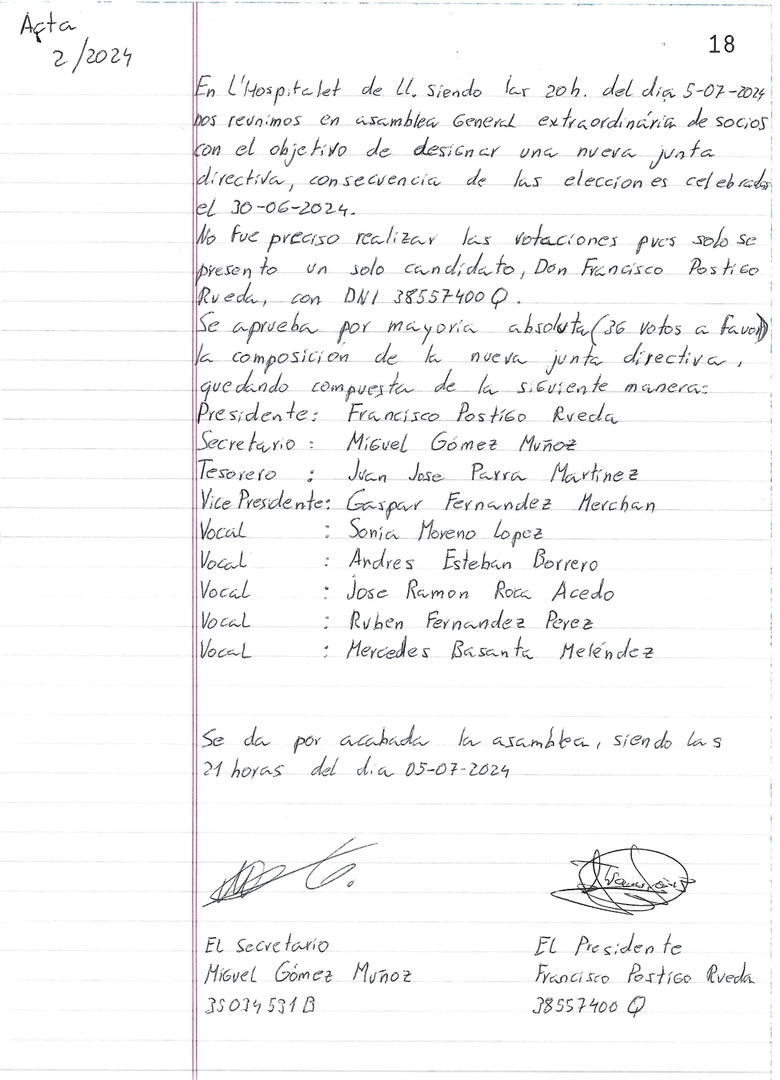 Acta
2/2024
18
En L'Hospitalet de Ll. siendo las 20h. del dia 5-07-2024
nos reunimos en asamblea General extraordinária de socios
con el objetivo de designar una nueva junta
directiva, consecuencia de las elecciones celebradas
el 30-06-2024.
No fue preciso realizar las votaciones pues solo se
presento un solo candidato, Don Francisco Postigo
Rueda, con DNI 38557400Q.
Se aprueba por mayoria absoluta (36 votos a favor)
la composición de la nueva junta directiva,
quedando compuesta de la siguiente manera:
Presidente: Francisco Postigo Rueda
Secretario: Miguel Gómez Muñoz
Tesorero : Juan Jose Parra Martinez
Vice Presidente: Gaspar Fernandez Merchan
Vocal : Sonia Moreno Lopez
Vocal : Andres Esteban Borrero
Vocal : Jose Ramon Roca Acedo
Vocal : Ruben Fernandez Perez
Vocal : Mercedes Basanta Meléndez
Se da por acabada la asamblea, siendo las
21 horas del dia 05-07-2024
El Secretario
Miguel Gómez Muñoz
35034531B
El Presidente
Francisco Postigo Rueda
38557400 Q